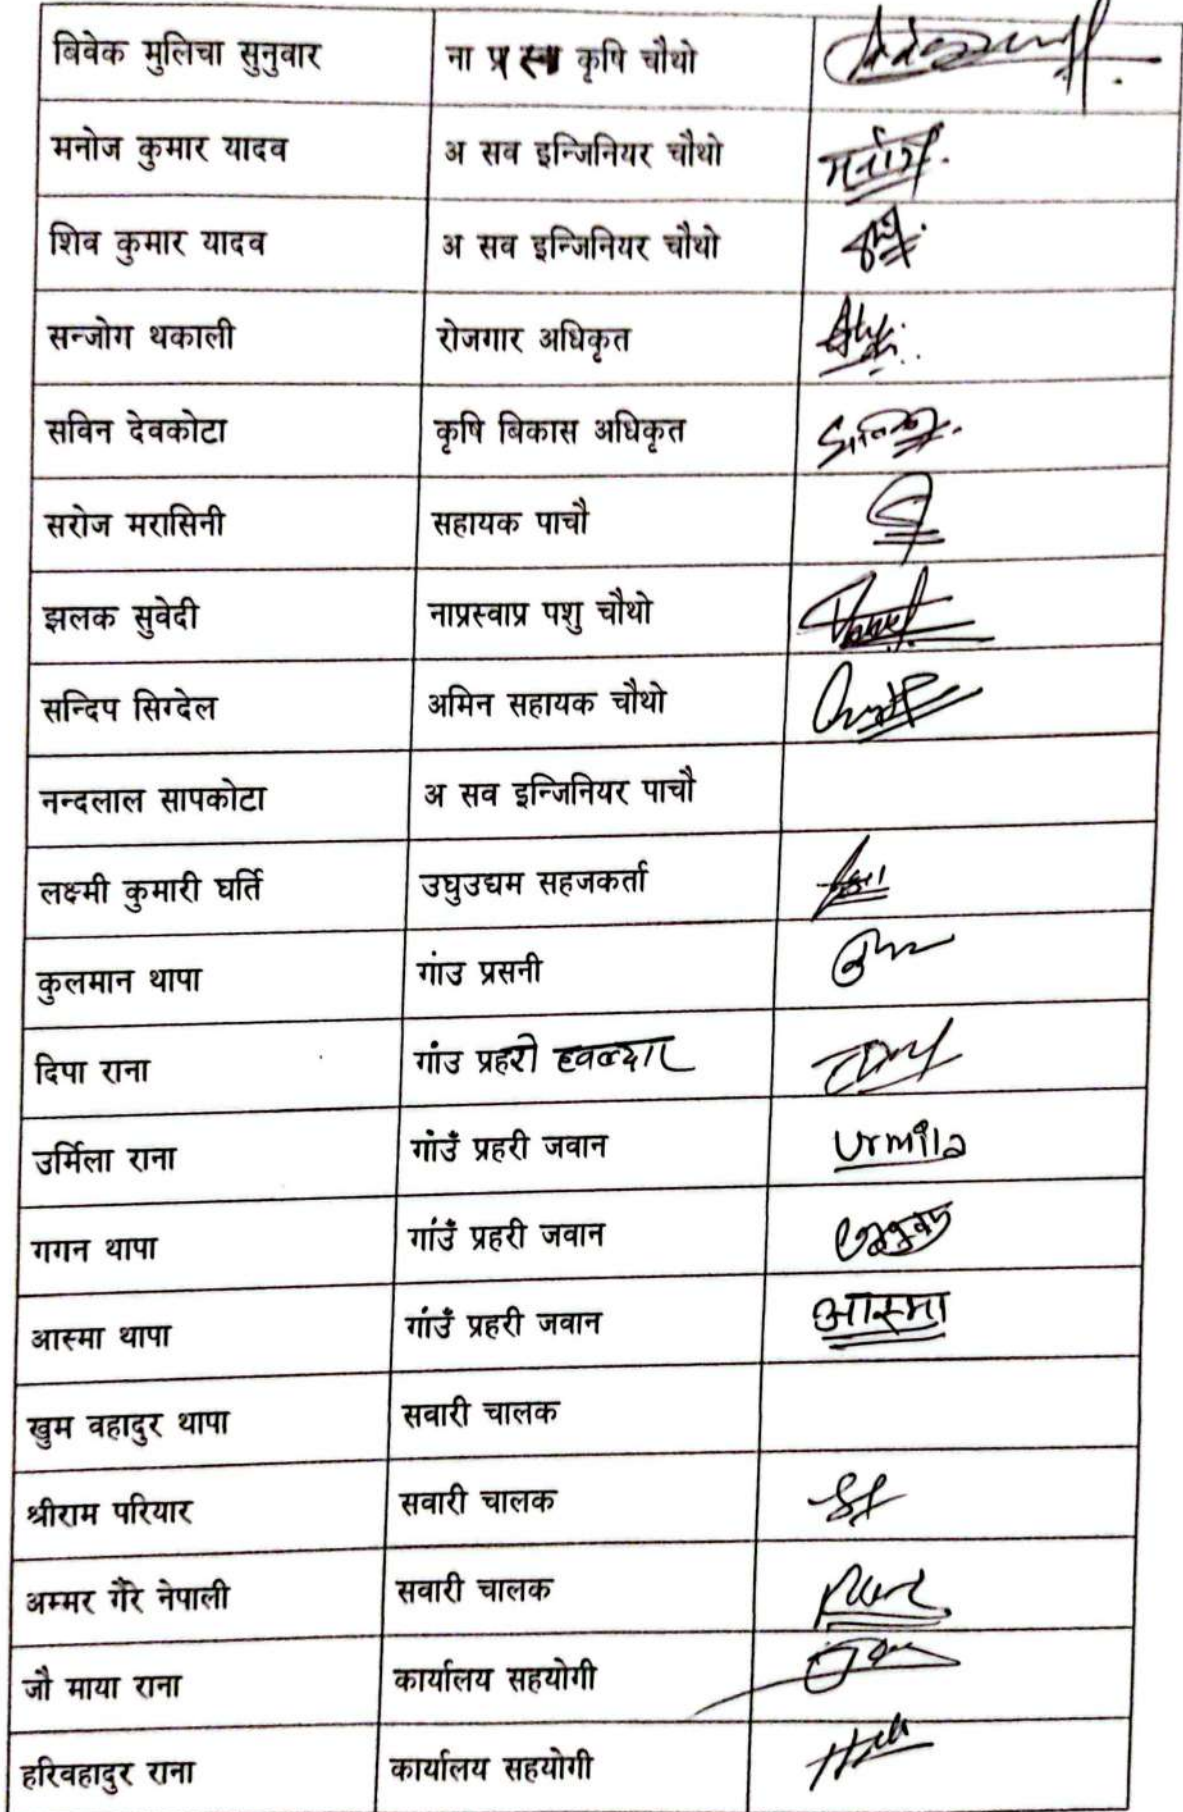 बिवेक मुलिचा सुनुवार ना प्र स्वा कृषि चौथो
मनोज कुमार यादव अ सव इन्जिनियर चौथो मनोज
शिव कुमार यादव अ सव इन्जिनियर चौथो
सन्जोग थकाली रोजगार अधिकृत
सविन देवकोटा कृषि बिकास अधिकृत
सरोज मरासिनी सहायक पाचौ
झलक सुवेदी नाप्रस्वाप्र पशु चौथो
सन्दिप सिग्देल अमिन सहायक चौथो
नन्दलाल सापकोटा अ सव इन्जिनियर पाचौ
लक्ष्मी कुमारी घर्ति उघुउद्यम सहजकर्ता
कुलमान थापा गांउ प्रसनी
दिपा राना गांउ प्रहरी हवल्दार
उर्मिला राना गांउँ प्रहरी जवान Urmila
गगन थापा गांउँ प्रहरी जवान
आस्मा थापा गांउँ प्रहरी जवान आस्मा
खुम वहादुर थापा सवारी चालक
श्रीराम परियार सवारी चालक
अम्मर गैरे नेपाली सवारी चालक
जौ माया राना कार्यालय सहयोगी
हरिवहादुर राना कार्यालय सहयोगी